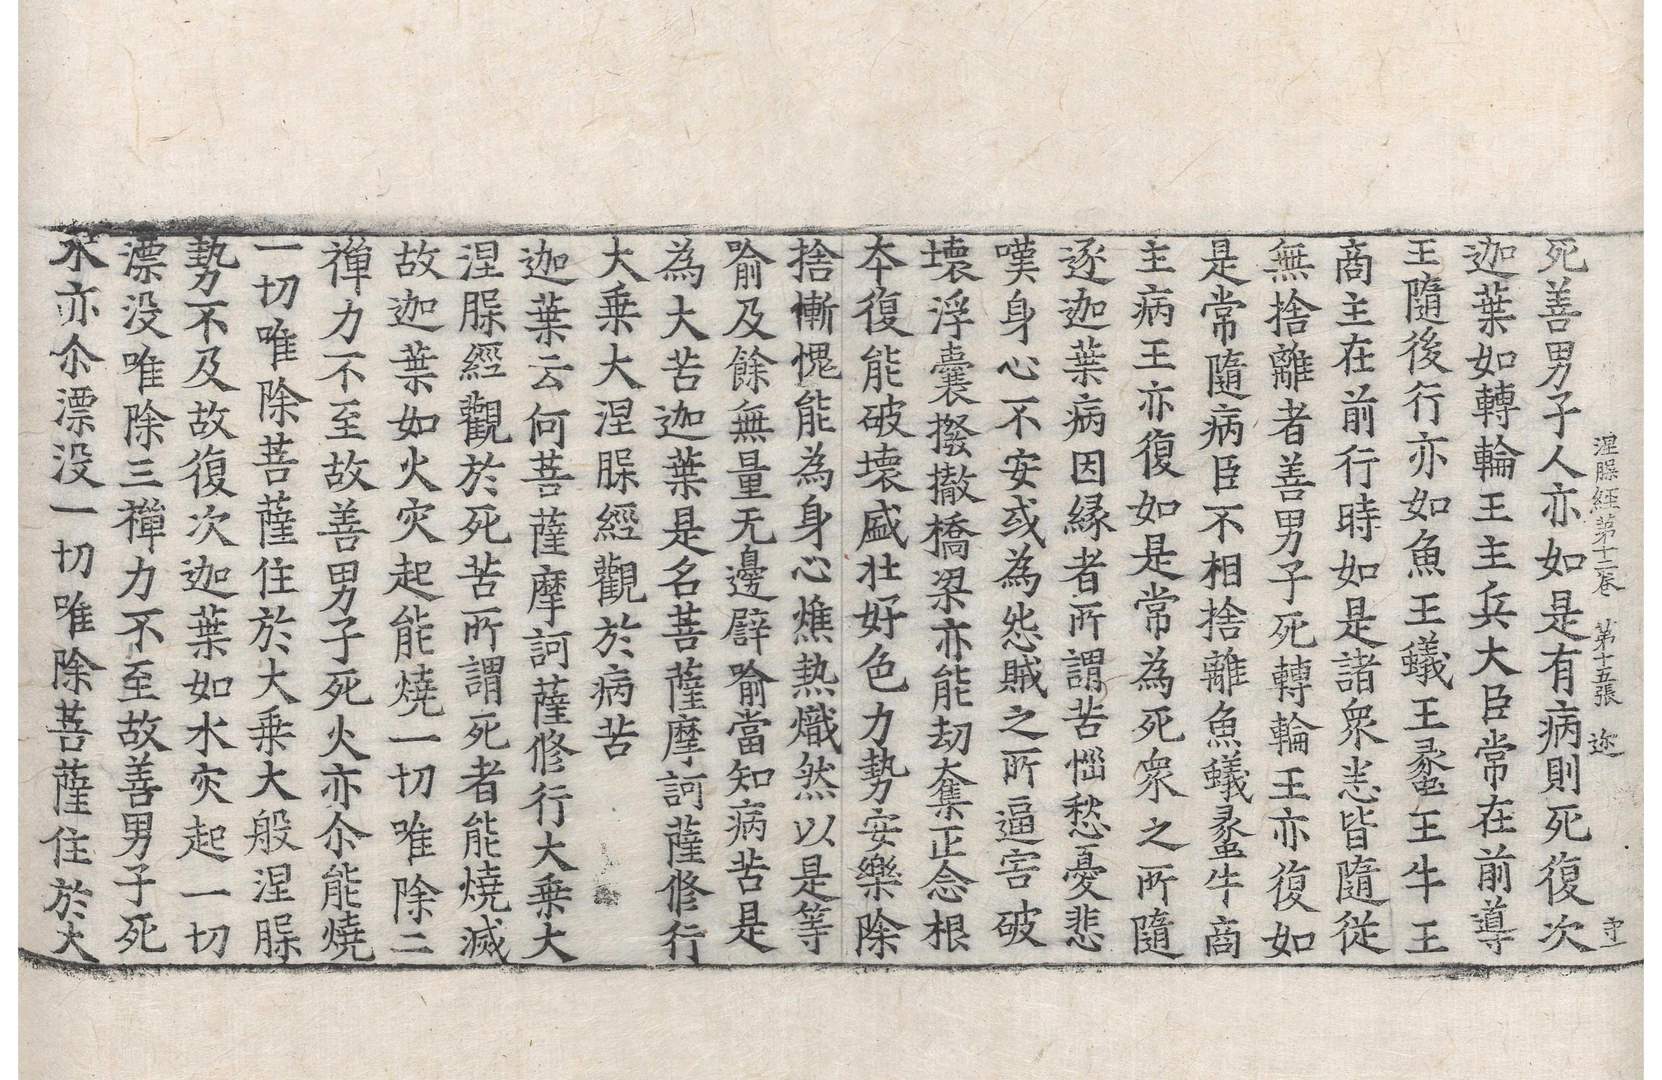 涅槃經第十二卷 第十五張 迩
死善男子人亦如是有病則死復次
迦葉如轉輪王主兵大臣常在前導
王隨後行亦如魚王蟻王蠡王牛王
商主在前行時如是諸衆悉皆隨從
無捨離者善男子死轉輪王亦復如
是常隨病臣不相捨離魚蟻蠡牛商
主病王亦復如是常為死衆之所隨
逐迦葉病因縁者所謂苦惱愁憂悲
嘆身心不安或為怨賊之所逼害破
壞浮囊撥撤橋梁亦能劫奪正念根
本復能破壞盛壯好色力勢安樂除
捨慚愧能為身心燋熱熾然以是等
喻及餘無量无邊譬喻當知病苦是
為大苦迦葉是名菩薩摩訶薩修行
大乗大涅槃經觀於病苦
迦葉云何菩薩摩訶薩修行大乗大
涅槃經觀於死苦所謂死者能燒滅
故迦葉如火灾起能燒一切唯除二
禪力不至故善男子死火亦尒能燒
一切唯除菩薩住於大乗大般涅槃
勢不及故復次迦葉如水灾起一切
漂没唯除三禪力不至故善男子死
水亦尒漂没一切唯除菩薩住於大